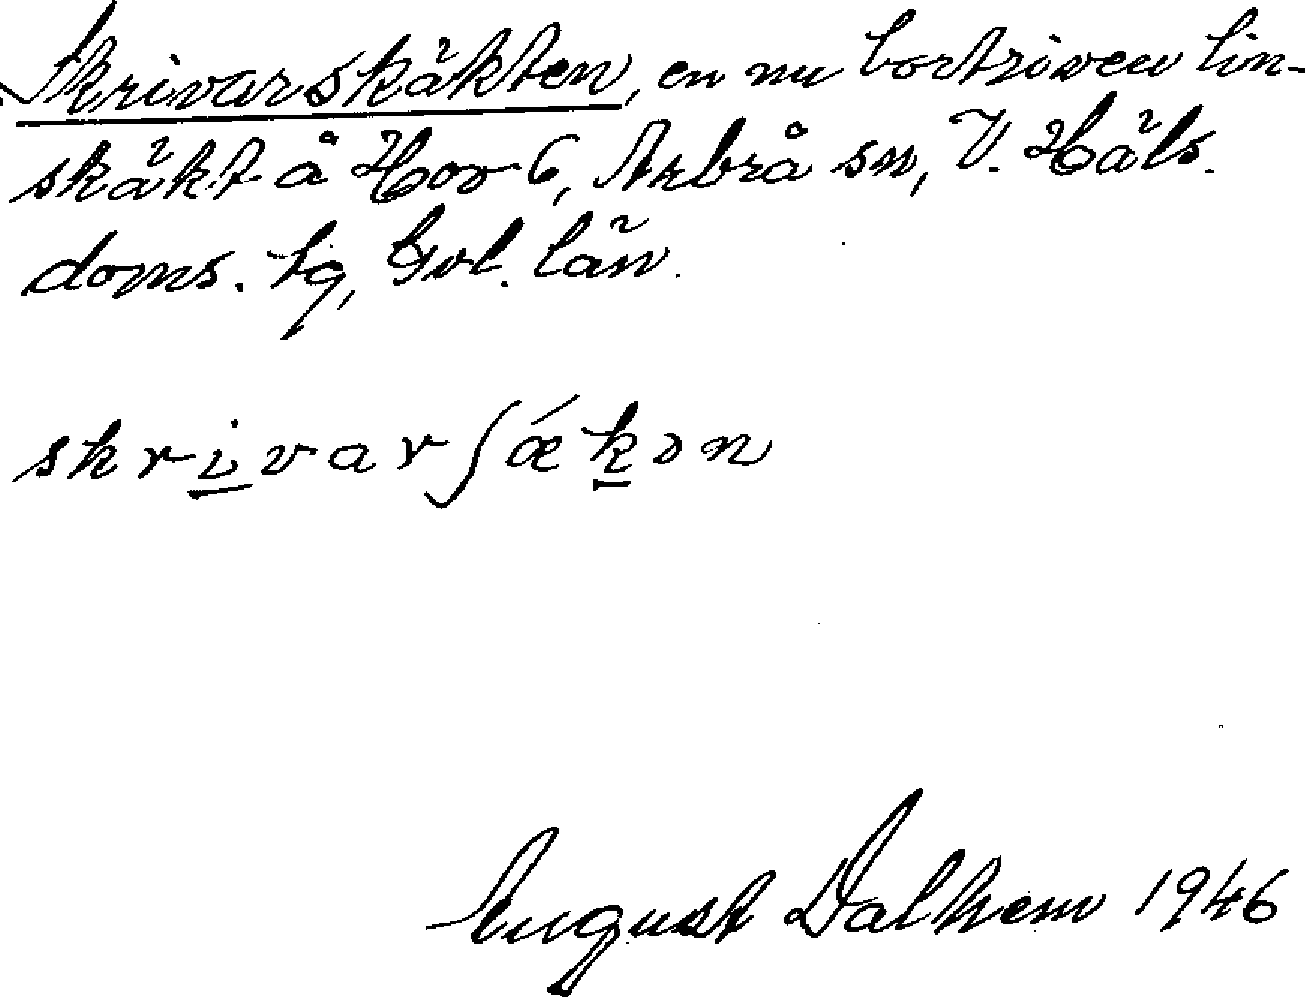 Skrivarskäkten, en nu bortriven lin-
skäkt å Hov 6, Arbrå sn, V. Häls.
doms. tg, Gvl. län.
skrivarʃǽkən
August Dalhem 1946